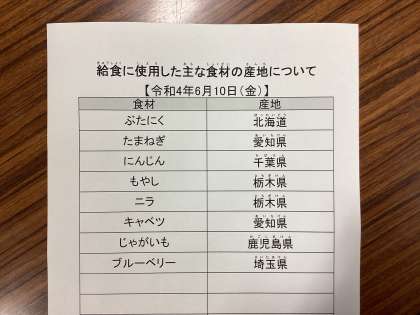 給食に使用した主な食材の産地について
【令和4年6月10日（金）】
食材 産地
ぶたにく 北海道
たまねぎ 愛知県
にんじん 千葉県
もやし 栃木県
ニラ 栃木県
キャベツ 愛知県
じゃがいも 鹿児島県
ブルーベリー 埼玉県